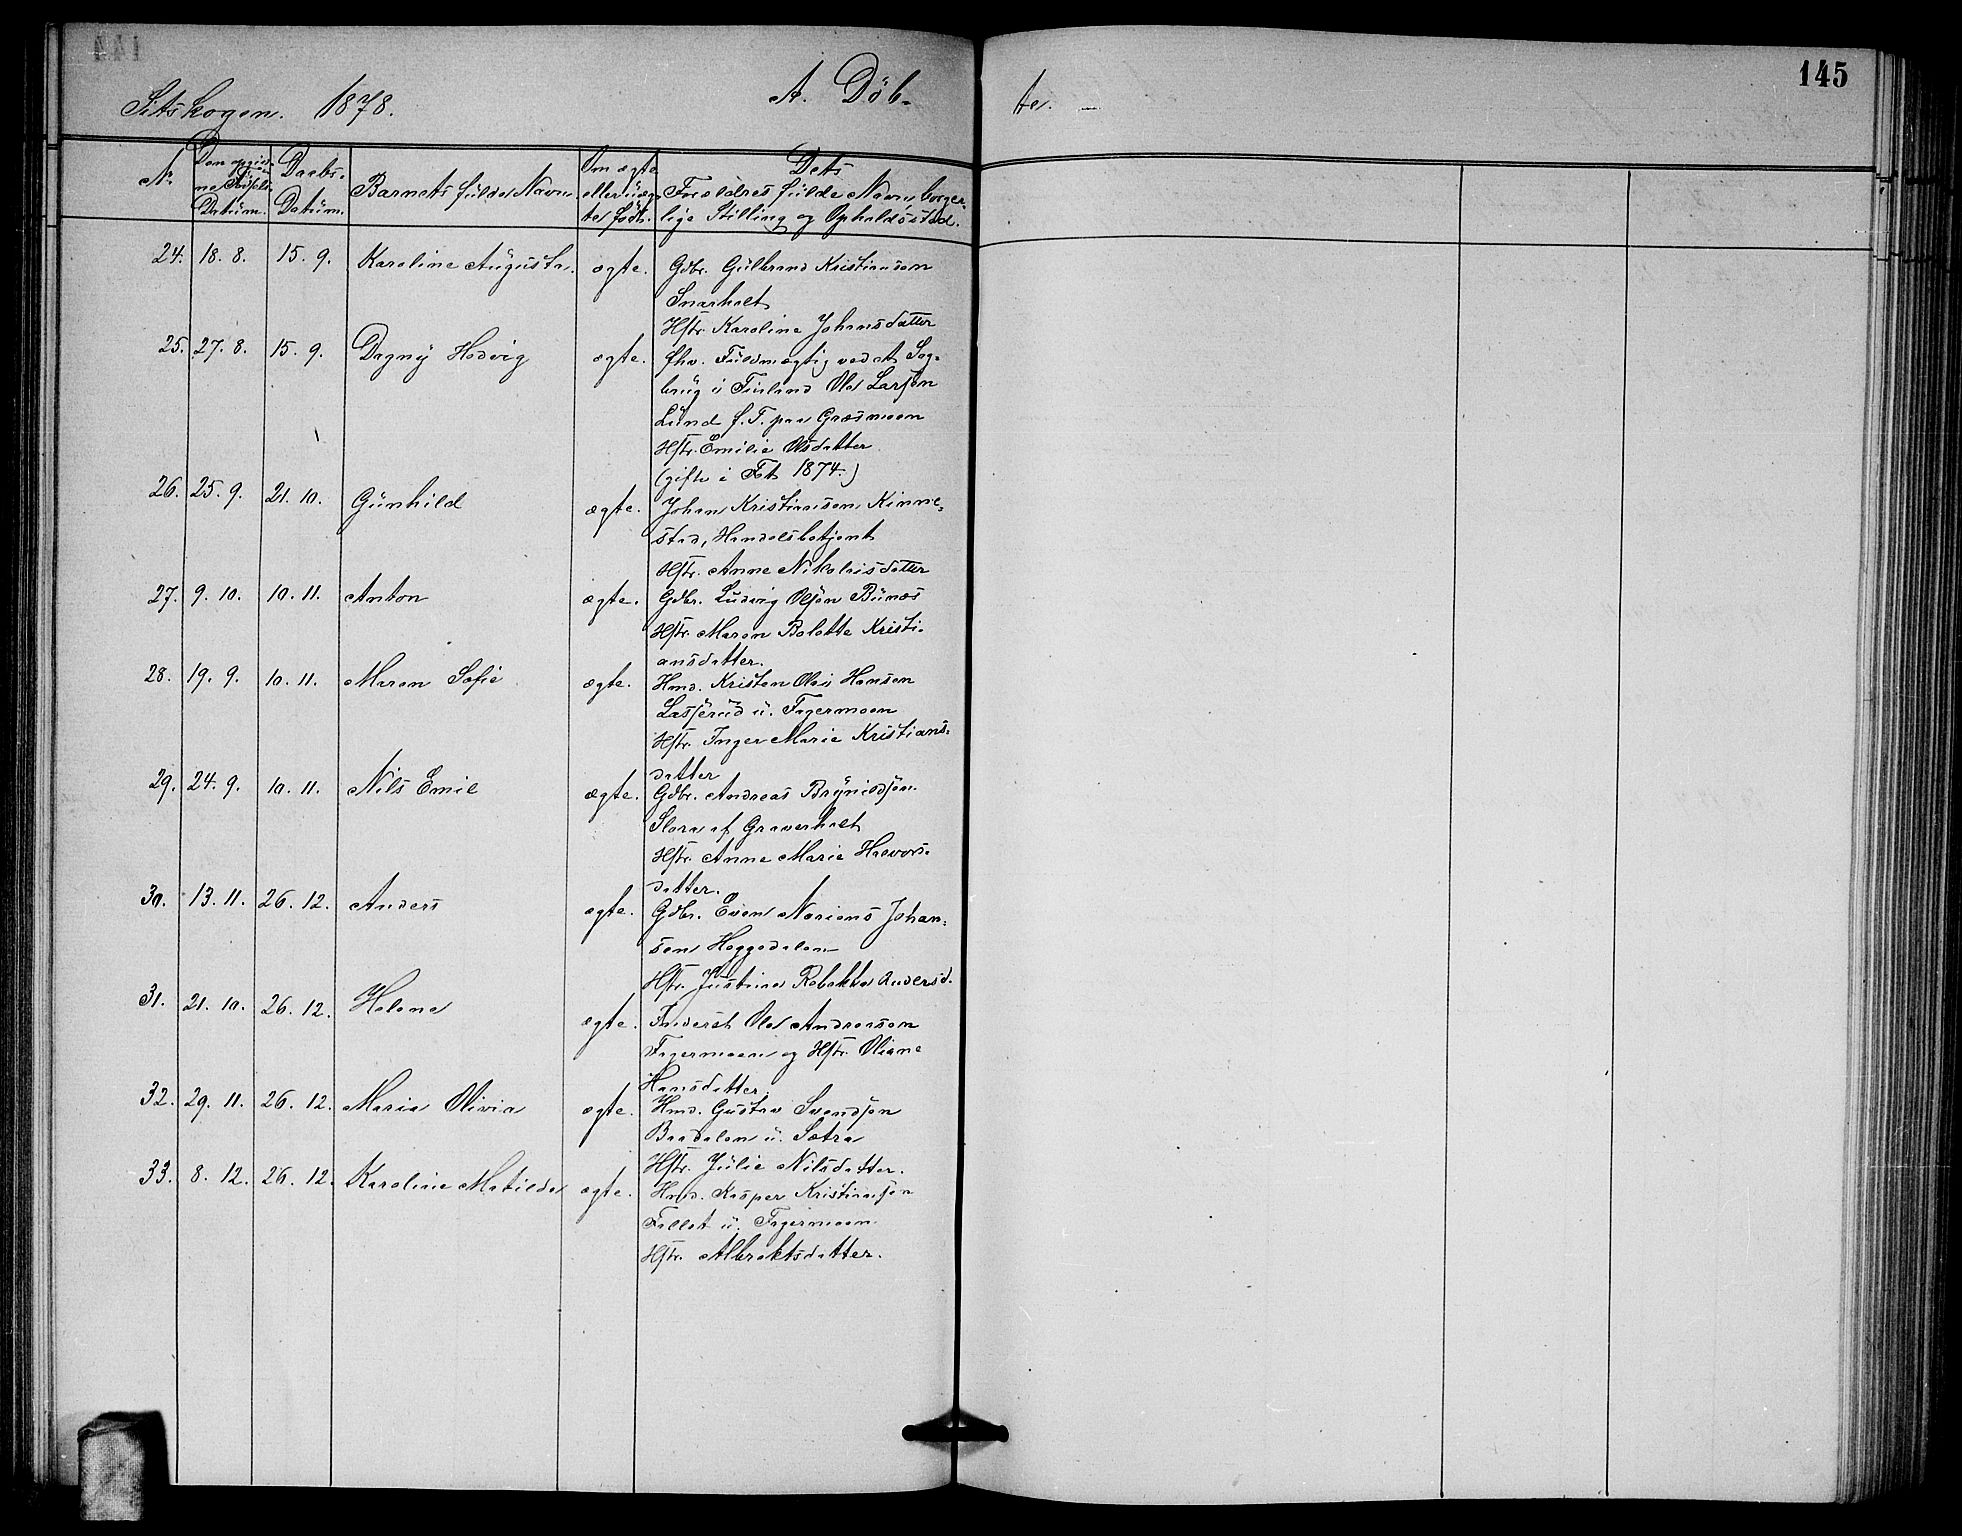 145
Setskogen. 1878. A. Döb- te.
No
Den opgiv-
ne Födsels-
Datum.
Daabs-
Datum.
Barnets fulde Navn.
Om ægte
eller uæg-
te födt.
Dets
Foreldres fulde Navn, borger-
lige Stilling og Opholdssted.
24. 18. 8. 15. 9. Karoline Augusta. ægte. Gdbr. Gulbrand Kristiansen
Snarholt
Hstr. Karoline Johansdatter
25. 27. 8. 15. 9. Dagny Hedvig ægte. fhv. Fuldmægtig ved et Sag-
brug i Finland Ole Larsen
Lund f. T. paa Græsmoen
Hstr. Emilie Olsdatter
(gifte i Fet 1874.)
26. 25. 9. 21. 10. Gunhild ægte. Johan Kristiansen Kinne-
stad, Handelsbetjent
Hstr. Anne Nikolaisdatter
27. 9. 10. 10. 11. Anton ægte. Gdbr. Ludvig Olsen Bunæs
Hstr. Maren Belette Kristi-
ansdatter.
28. 19. 9. 10. 11. Maren Sofie ægte. Hmd. Kristen Olai Hansen
Lasserud u. Fagermoen
Hstr. Inger Marie Kristians-
datter
29. 24. 9. 10. 11. Nils Emil ægte. Gdbr. Andreas Brynildsen
Slora af Graverholt
Hstr. Anne Marie Halvors-
datter.
30. 13. 11. 26. 12. Anders ægte. Gdbr. Even Johan-
sen Heggedalen
Hstr. Justine Rebekka Andersd.
31. 21. 10. 26. 12. Helene ægte. Inderst Ole Andreasen
Fagermoen og Hstr. Oliane
Hansdatter.
32. 29. 11. 26. 12. Maria Olivia ægte. Hmd. Gustav Svendsen
Baadalen u. Sætra
Hstr. Julie Nilsdatter.
33. 8. 12. 26. 12. Karoline Matilde ægte. Hmd. Kasper Kristiansen
Fallet u. Fagermoen
Hstr. Albrektsdatter.